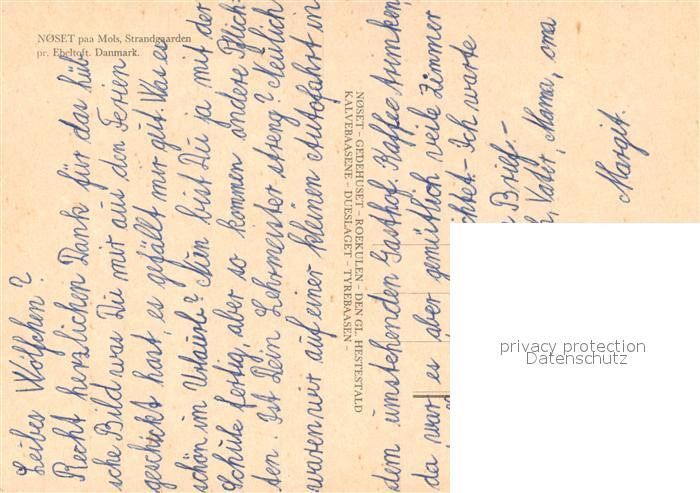 NØSET paa Mols, Strandgaarden
pr. Ebeltoft. Danmark.
NØSET – GEDEHUSET – ROEKULEN – DEN GL. HESTESTALD
KALVEBAASENE – DUESLAGET – TYREBAASEN –
Leibes Wölfchen?
Recht herzlichen Dank für das hüb-
sche Bild was Du mir aus den Ferien
geschickt hast, es gefällt mir gut. War es
schön im Urlaub? Nun bist Du ja mit der
Schule fertig, aber so kommen andere Pflich-
ten. Ist Dein Lehrmeister streng? Neulich
waren wir auf einer kleinen Autofahrt in
dem umstehenden Gasthof Kaffee trinken,
da war es aber gemütlich, viele Zimmer
chtet – Ich warte
Brief. –
Vater, Mama, oma
Margit.
privacy protection
Datenschutz